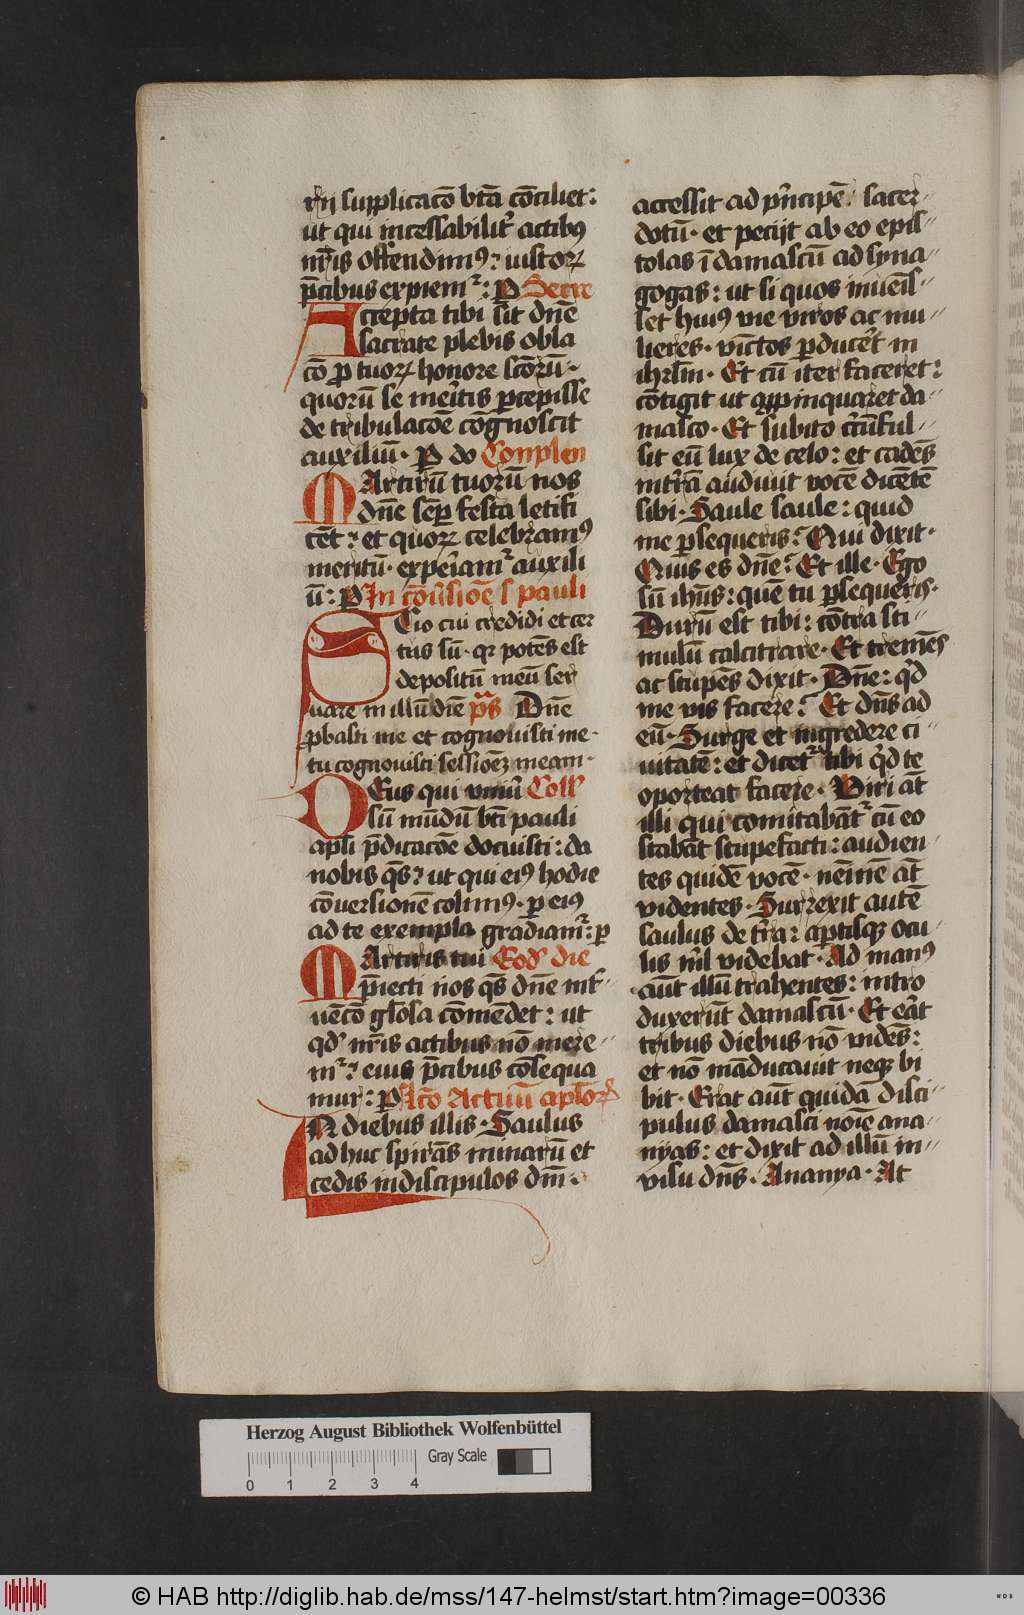 rtij supplicacō btā cōciliet:
ut qui incessabilit᷑ actibꝰ
nr̄is offendimꝰ: iustoꝝ
p̄cibus expiem᷑: P Secre
Accepta tibi sit dn̄e
sacrate plebis obla
cō ꝓ tuoꝝ honore scōrū·
quorū se meritis percepisse
de tribulacōe cōgnoscit
auxiliū· P do Conplen
Martirū tuorū nos
dn̄e sēꝑ festa letifi
cēt: et quoꝝ celebramꝰ
meritū· experiam᷑ auxili
ū: P In cōuersioē s pauli
Scio cui credidi et cer
tus sū· qr potēs est
depositū meū ser
uare in illū diē ps Dn̄e
ꝓbasti me et cognouisti me·
tu cognouisti sessionē meam·
Deus qui vniuer Coll
sū mūdū bti pauli
apli p̄dicacōe docuisti: da
nobis qs: ut qui eiꝰ hodie
cōuersionē colimꝰ· ꝑ eiꝰ
ad te exempla gradiam᷑: ꝑ
Martiris tui Eod die
p̄iecti nos qs dn̄e int᷑
uēcō glosa cōmēdet: ut
qd nr̄is actibus nō mere-
m᷑: eius p̄cibus cōsequa
mur: P Lcō Actuū aploꝝ
In diebus illis· Saulus
ad huc spirās minarū et
cedis in discipulos dn̄i·
accessit ad pncipē sacer-
dotū· et pecijt ab eo epis-
tolas ī damascū ad syna-
gogas: ut si quos inueīs-
set huiꝰ vie viros ac mu-
lieres· victos ꝑducer̄t in
ihrlm̄· Et cū iter faceret:
cōtigit ut appinquaret da-
masco· Et subito circūful-
sit eū lux de celo: et cadēs
in tr̄ā audiuit vocē dicētē
sibi· Saule saule: quid
me ꝑsequeris? Qui dixit·
Quis es dn̄e? Et ille· Ego
sū ihūs: quē tu ꝑsequeris·
Durū est tibi: cōtra sti-
mulū calcitrare· Et tremēs
ac stupēs dixit· Dn̄e: qd
me vis facere? Et dn̄s ad
eū· Surge et ingredere ci-
uitatē: et dicet᷑ tibi qd te
oporteat facere· Viri āt
illi qui comitabāt᷑ cū eo
stabāt stupefacti: audien-
tes quidē vocē· nēinē āt
videntes· Surrexit autē
saulus de tr̄a: aptisqꝫ ocu-
lis nil videbat· Ad manꝰ
aūt illū trahentes: intro
duxerūt damascū· Et erāt
tribus diebus nō vidēs:
et nō māducauit neqꝫ bi
bit· Erat aūt quidā disci-
pulus damasci noīe ana-
nyas: et dixit ad illū in-
visu dn̄s· Ananya· At
Herzog August Bibliothek Wolfenbüttel
Gray Scale
0 1 2 3 4
© HAB http://diglib.hab.de/mss/147-helmst/start.htm?image=00336